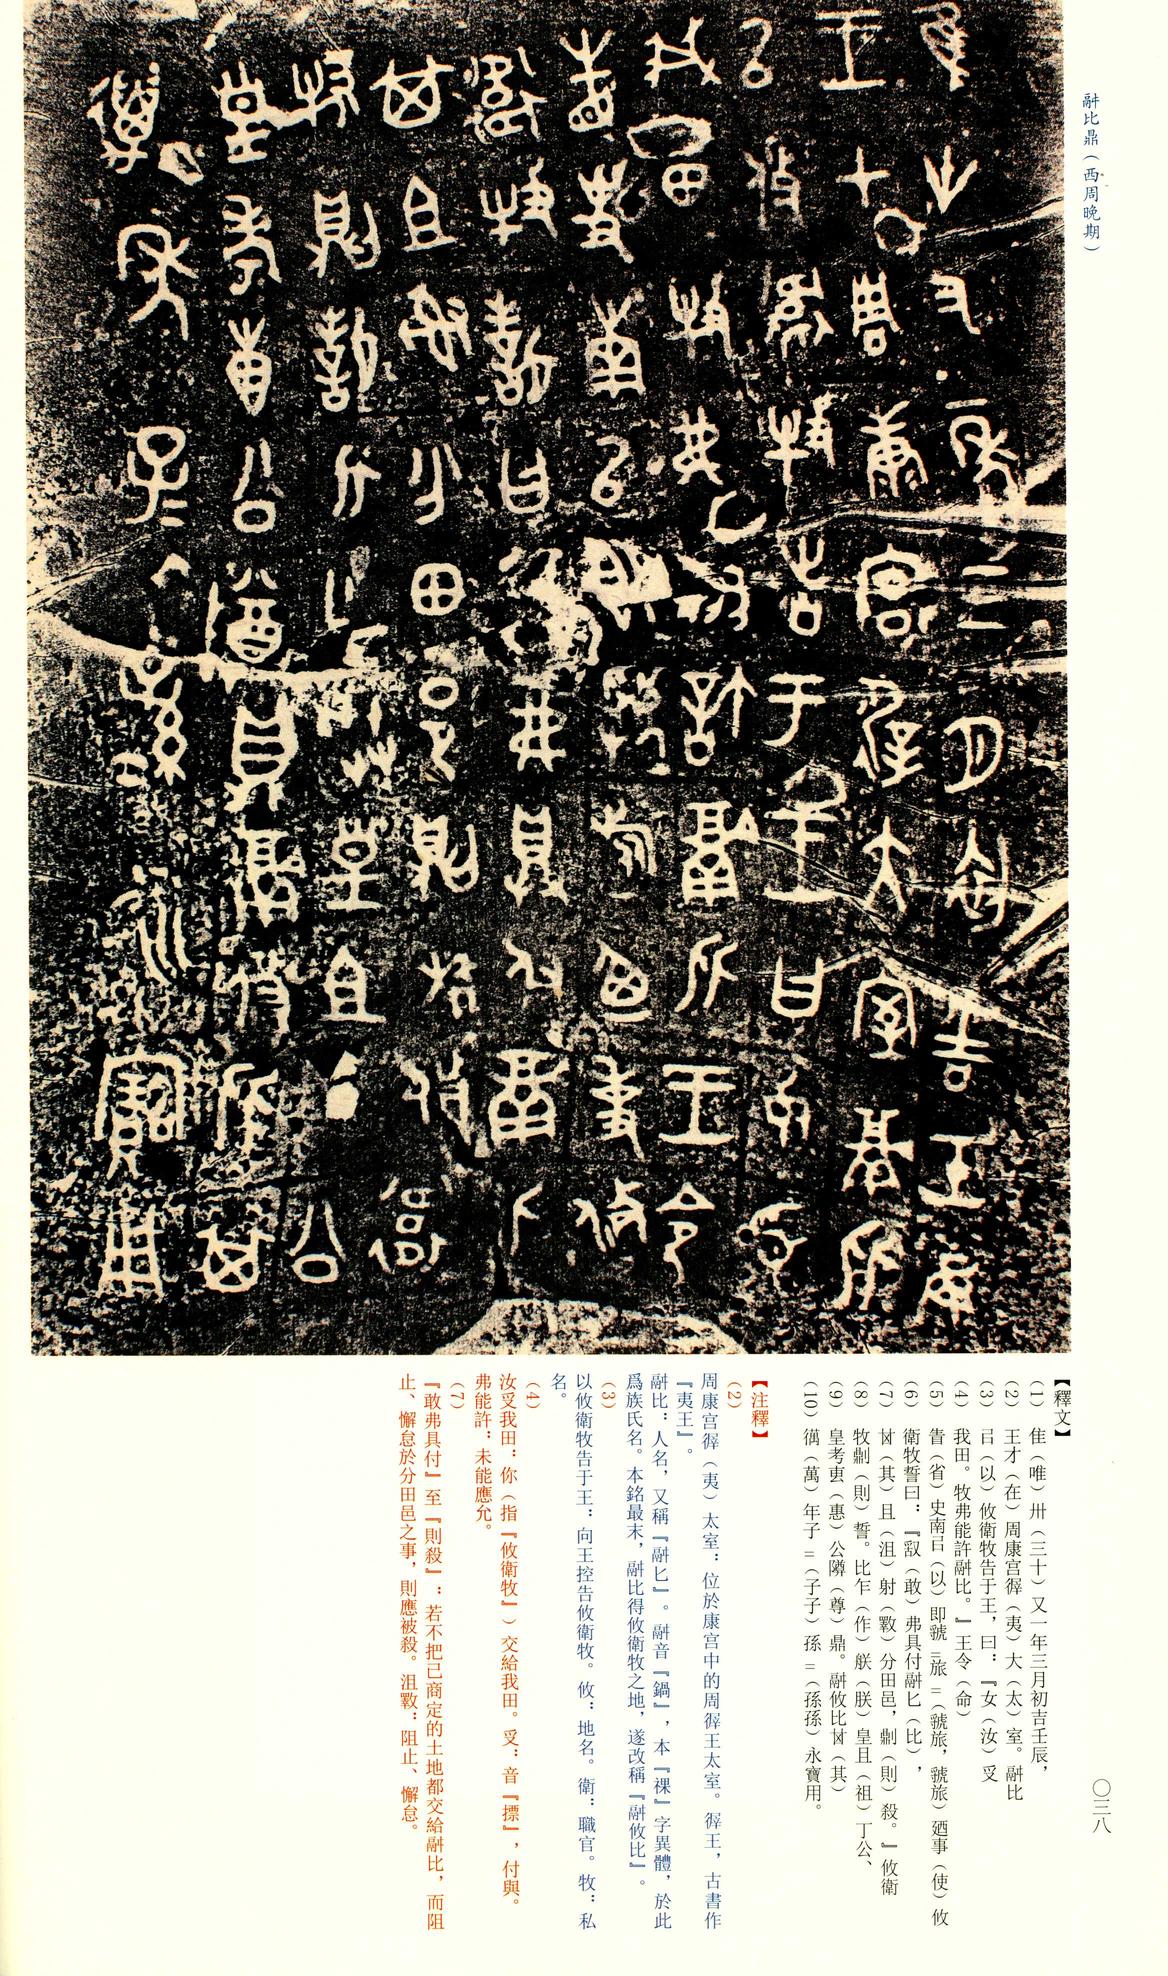 𩰫比鼎（西周晚期）
〇三八
【釋文】
(1) 隹（唯）卅（三十）又一年三月初吉壬辰，
(2) 王才（在）周康宫𢓊（夷）大（太）室。𩰫比
(3) 㠯（以）攸衛牧告于王，曰：『女（汝）𠬪
(4) 我田。牧弗能許𩰫比。』王令（命）
(5) 眚（省）史南㠯（以）即虢=旅=（虢旅，虢旅）廼事（使）攸
(6) 衛牧誓曰：『𠭯（敢）弗具付𩰫匕（比），
(7) 𠀠（其）且（沮）射（斁）分田邑，𠟭（則）殺。』攸衛
(8) 牧𠟭（則）誓。比乍（作）朕（朕）皇且（祖）丁公、
(9) 皇考叀（惠）公隣（尊）鼎。𩰫攸比𠀠（其）
(10) 𨖴（萬）年子=（子子）孫=（孫孫）永寶用。
【注釋】
(2)
周康宫𢓊（夷）太室：位於康宫中的周𢓊王太室。𢓊王，古書作
『夷王』。
𩰫比：人名，又稱『𩰫匕』。𩰫音『鍋』，本『祼』字異體，於此
爲族氏名。本銘最末，𩰫比得攸衛牧之地，遂改稱『𩰫攸比』。
(3)
以攸衛牧告于王：向王控告攸衛牧。攸：地名。衛：職官。牧：私
名。
(4)
汝𠬪我田：你（指『攸衛牧』）交給我田。𠬪：音『摽』，付與。
弗能許：未能應允。
(7)
『敢弗具付』至『則殺』：若不把已商定的土地都交給𩰫比，而阻
止、懈怠於分田邑之事，則應被殺。沮斁：阻止、懈怠。